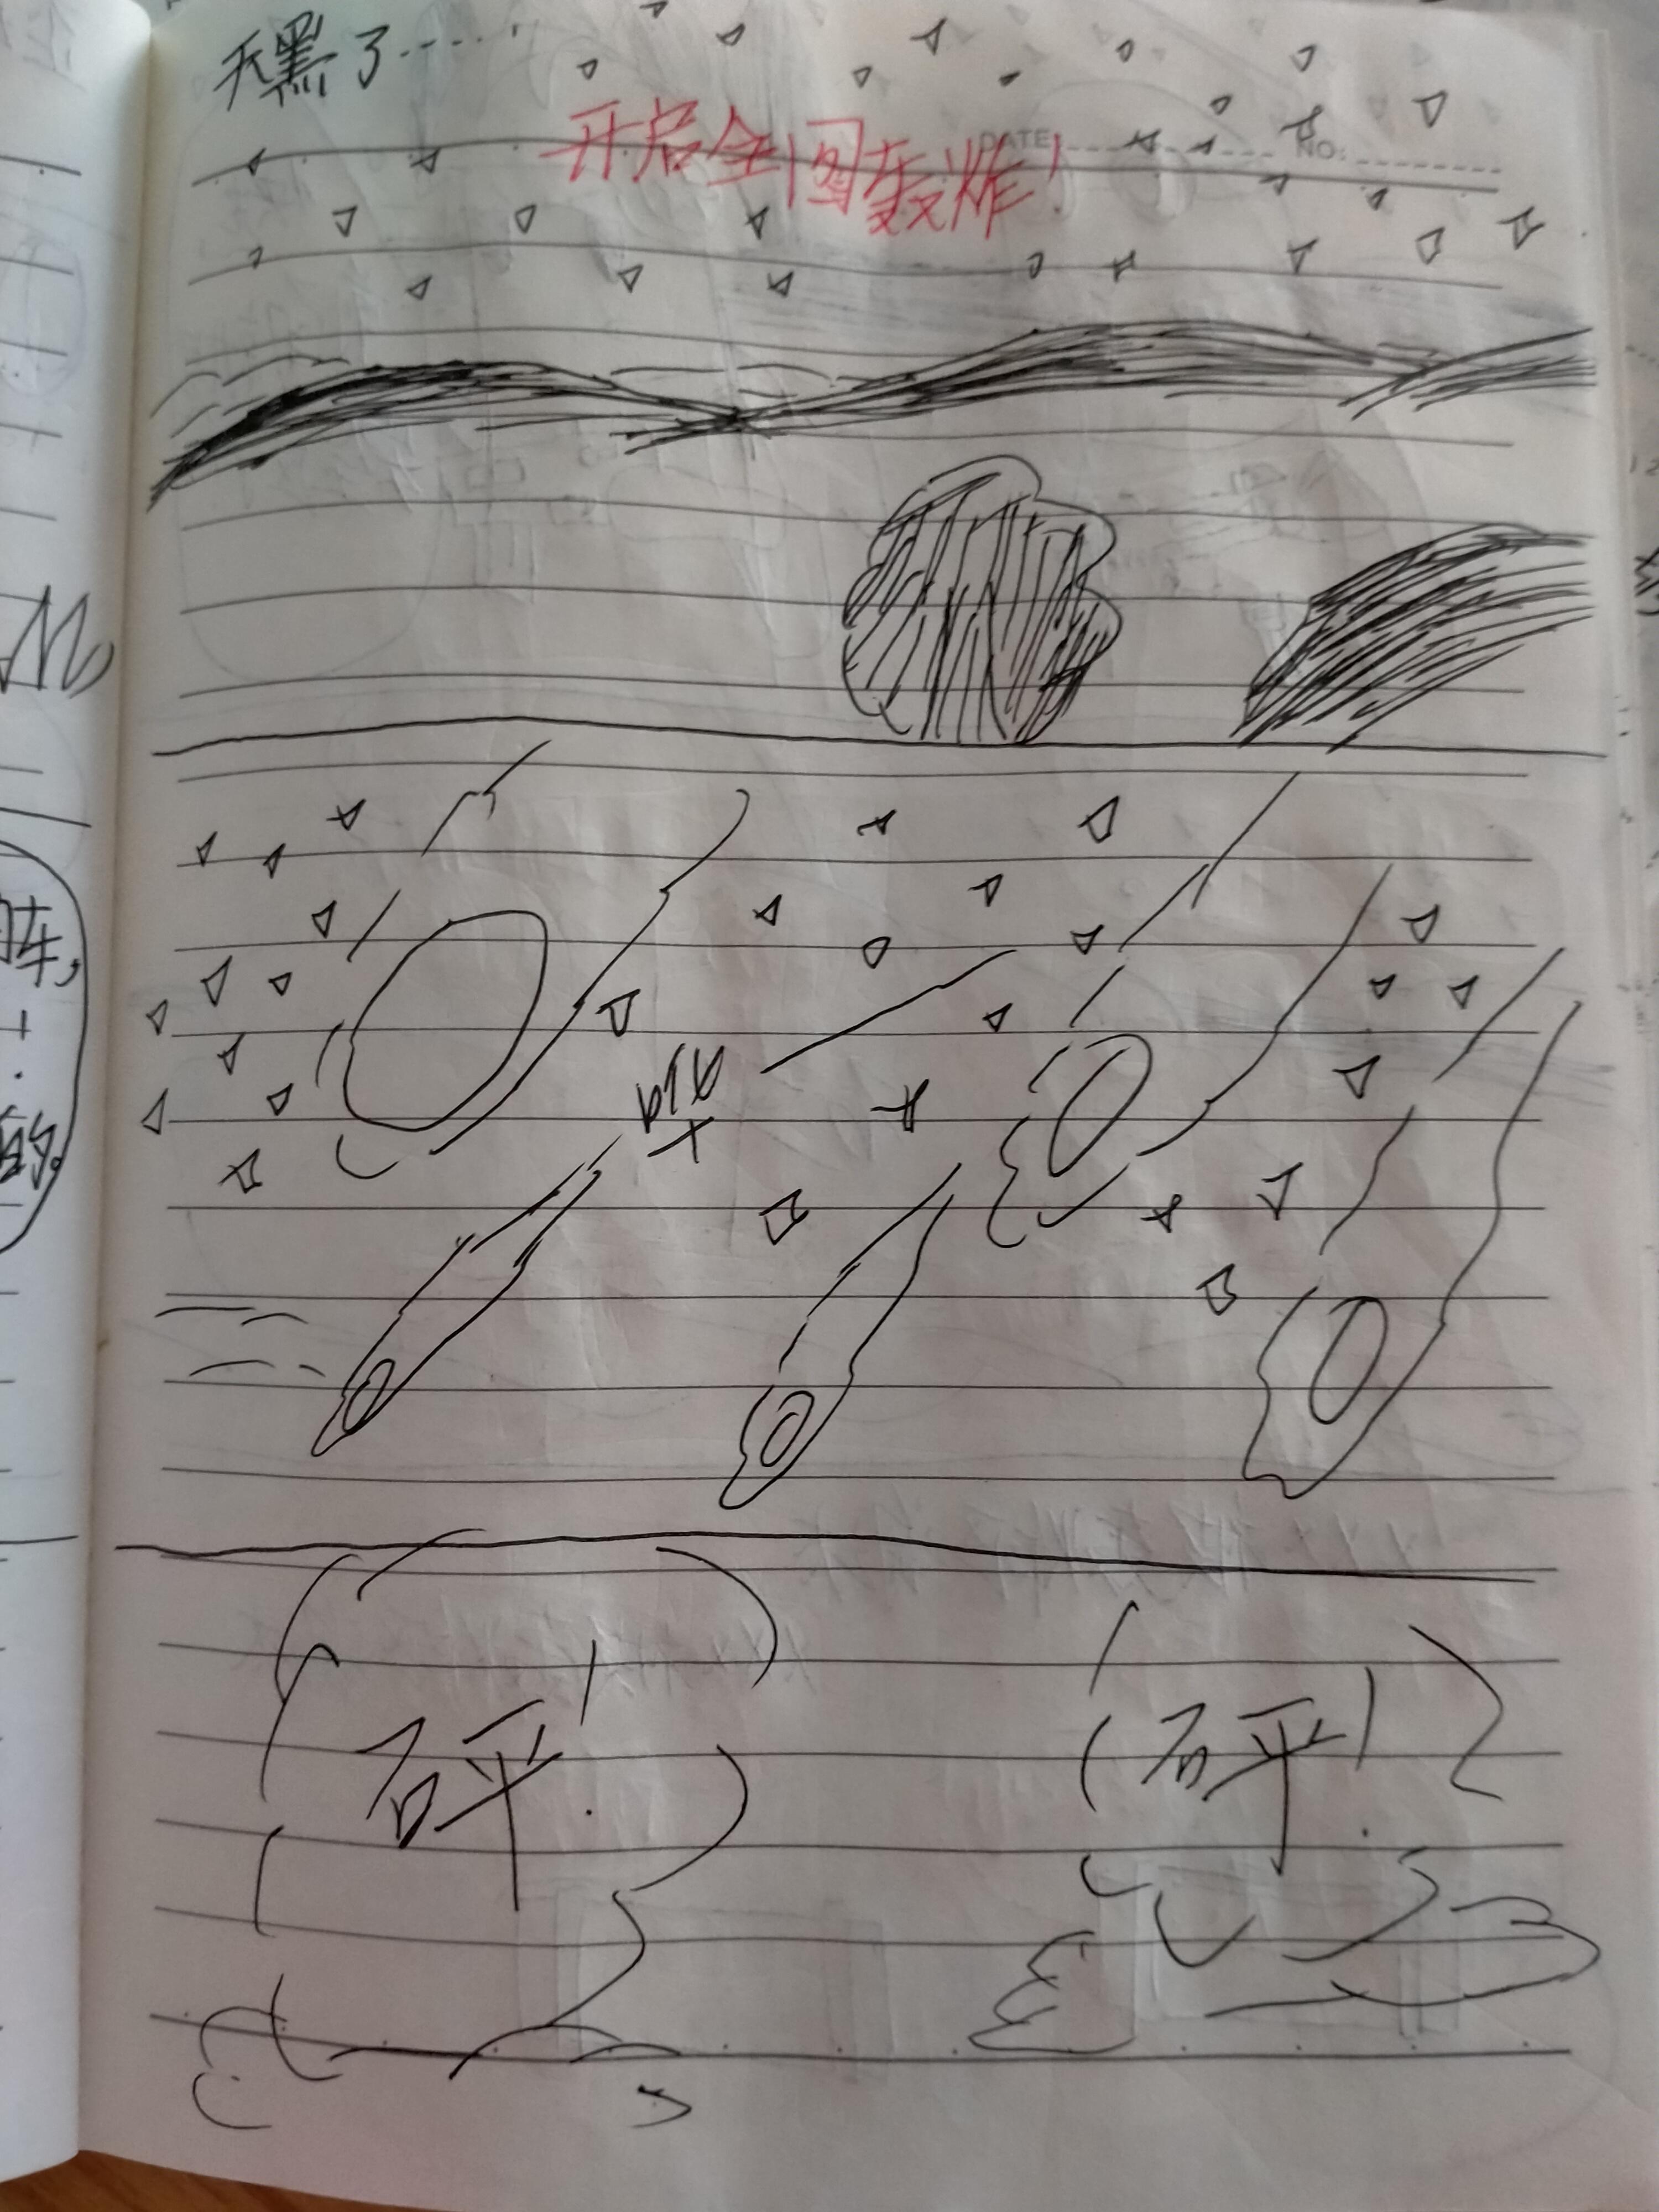 天黑了……
开启全图轰炸!
DATE
NO:
砰!
砰!
车,
的。